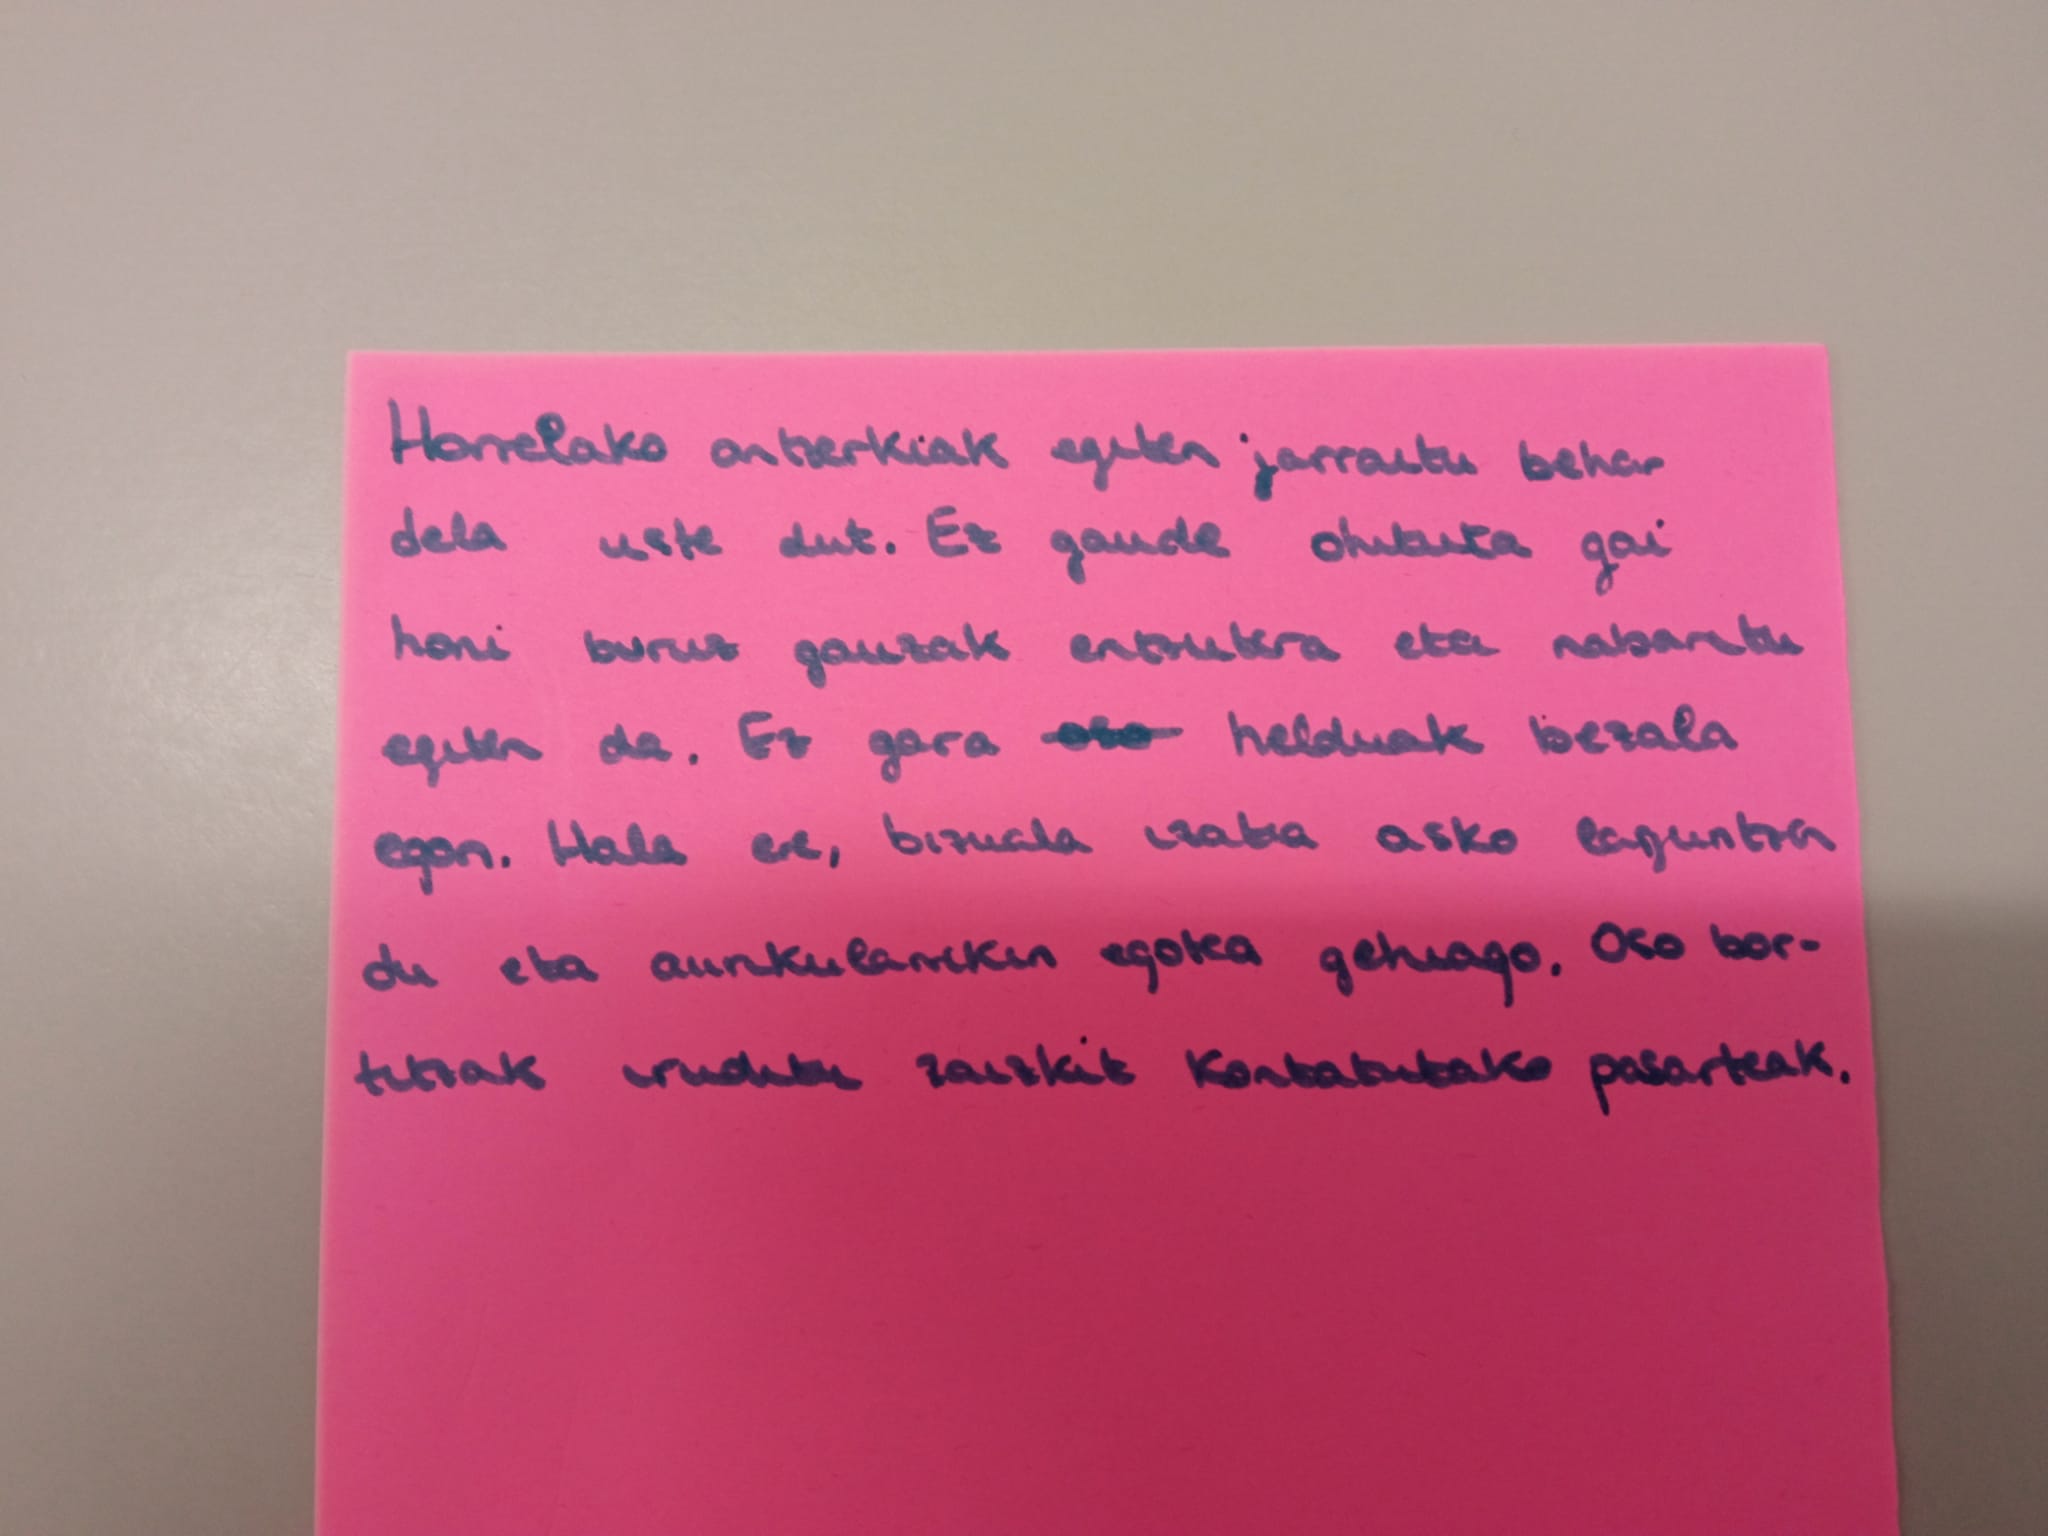 Horrelako antzerkiak egiten jarraitu behar
dela uste dut. Ez gaude ohituta gai
honi buruz gauzak entzutera eta nabaritu
egiten da. Ez gara oso helduak bezala
egon. Hala ere, bizuala izatea asko laguntzen
du eta aurikularrekin egotea gehiago. Oso bor-
titzak iruditu zaizkit kontatutako pasarteak.